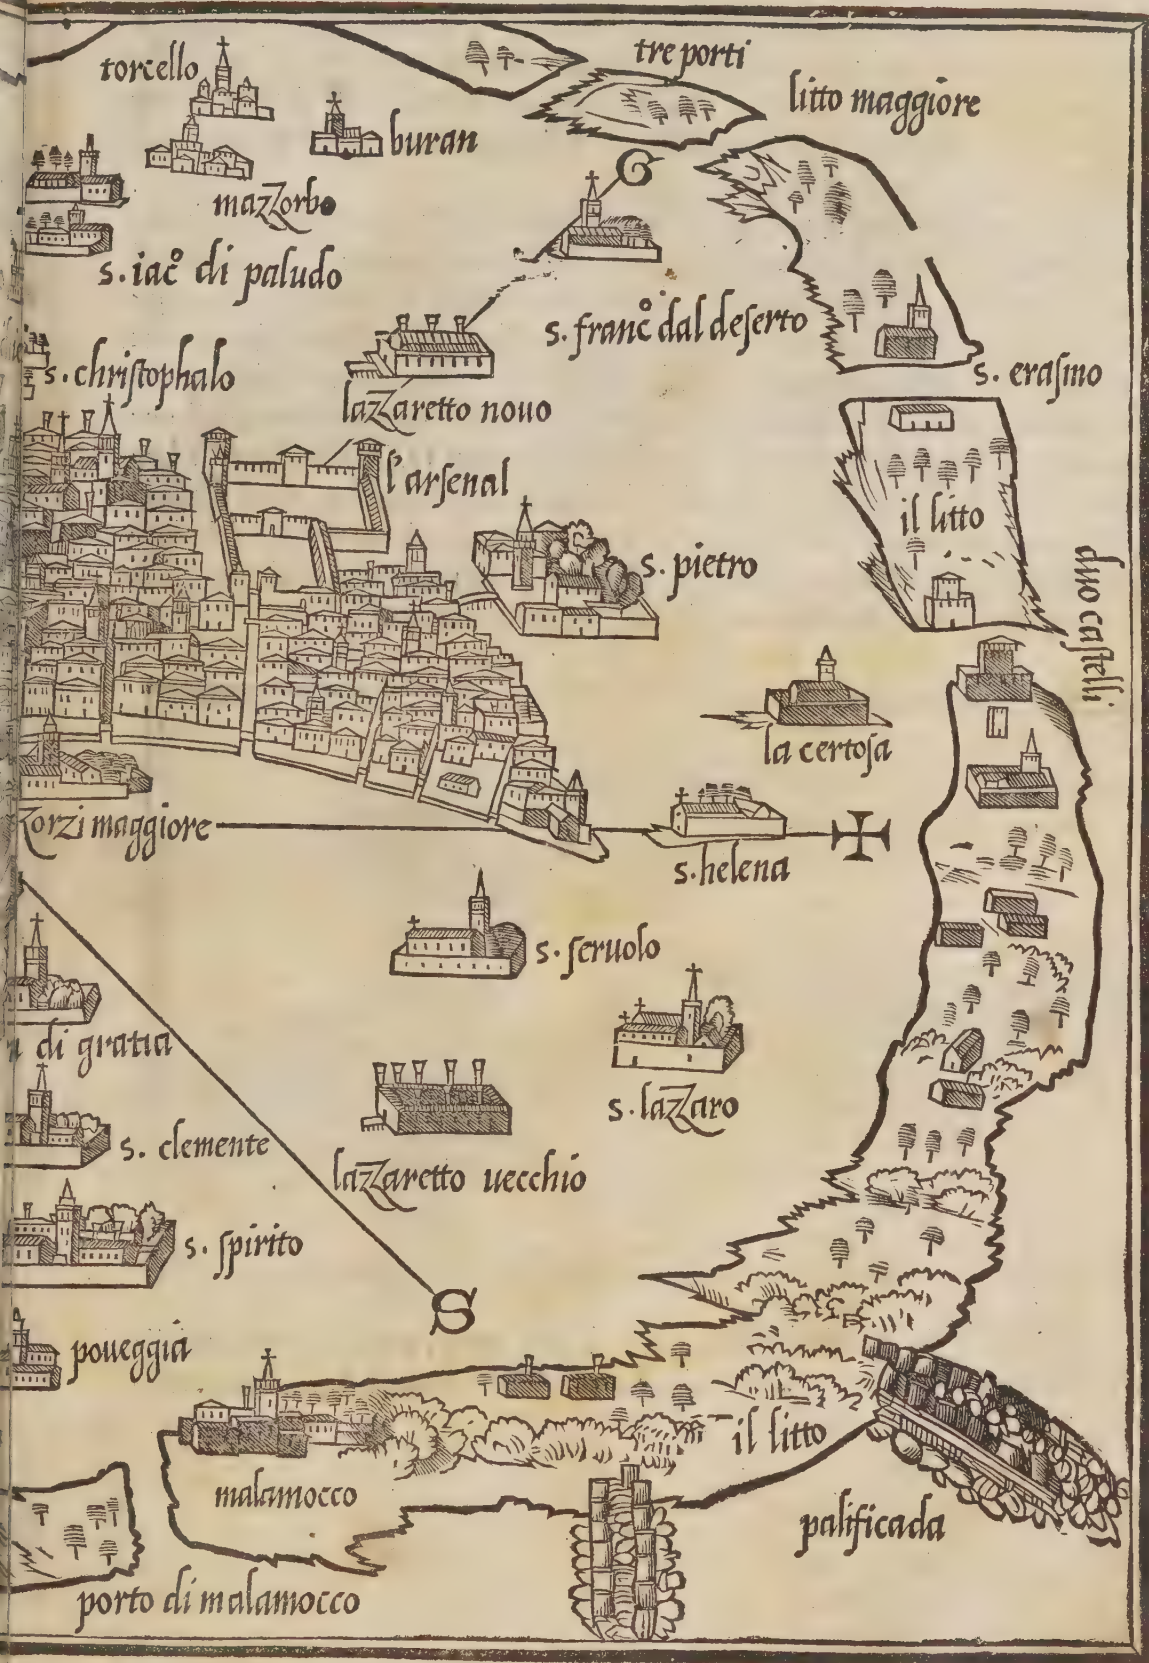 torcello
tre porti
litto maggiore
buran
mazzorbo
G
s. iac.º di paludo
s. franc.º dal deserto
s. christophalo
lazzaretto nouo
s. eraſmo
l'arſenal
il litto
s. pietro
duo caſtelli
la certoſa
zorzi maggiore
s. helena
s. ſeruolo
di gratia
s. lazzaro
s. clemente
lazzaretto uecchio
s. ſpirito
S
poueggia
il litto
malamocco
palificada
porto di malamocco